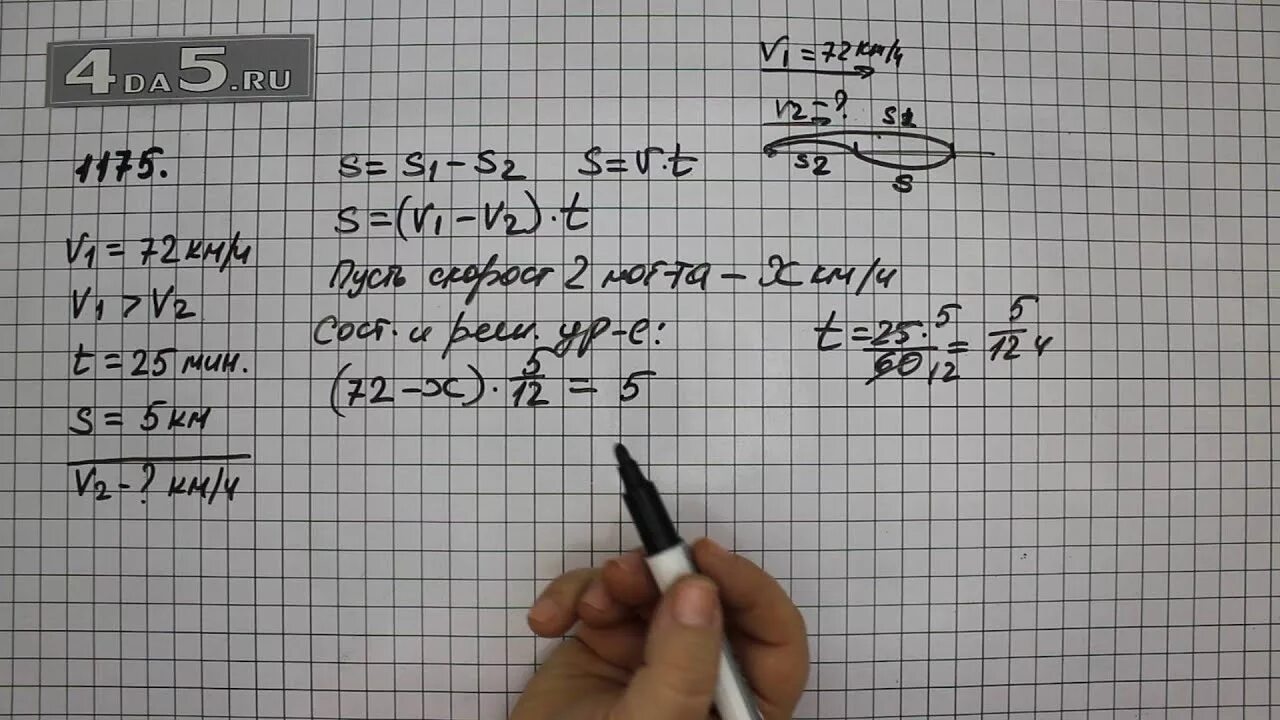 4DA5.RU
1175.
V1 = 72 км/ч
V1 > V2
t = 25 мин.
S = 5 км
V2 - ? км/ч
S = S1 - S2   S = V·t
S = (V1 - V2)·t
Пусть скорост 2 мот-та - x км/ч
Сост. и реш. ур-е:
(72 - x) · 5/12 = 5
V1 = 72 км/ч
V2 - ?
S1
S2
S
t = 25·5/60 12 = 5/12 ч